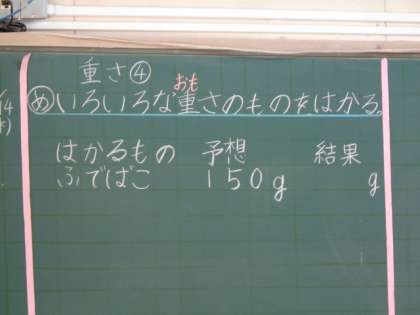 重さ④
めいろいろな重さのものをはかる。
おも
はかるもの 予想 結果
ふでばこ 150g g